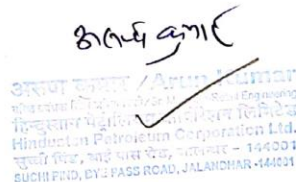 अरुण कुमार
अरुण कुमार / Arun Kumar
हिन्दुस्तान पेट्रोलियम कॉर्पोरेशन लिमिटेड
Hindustan Petroleum Corporation Ltd.
सुच्ची पिंड, बाई पास रोड, जालन्धर - 144001
SUCHI PIND, BYE PASS ROAD, JALANDHAR -144001